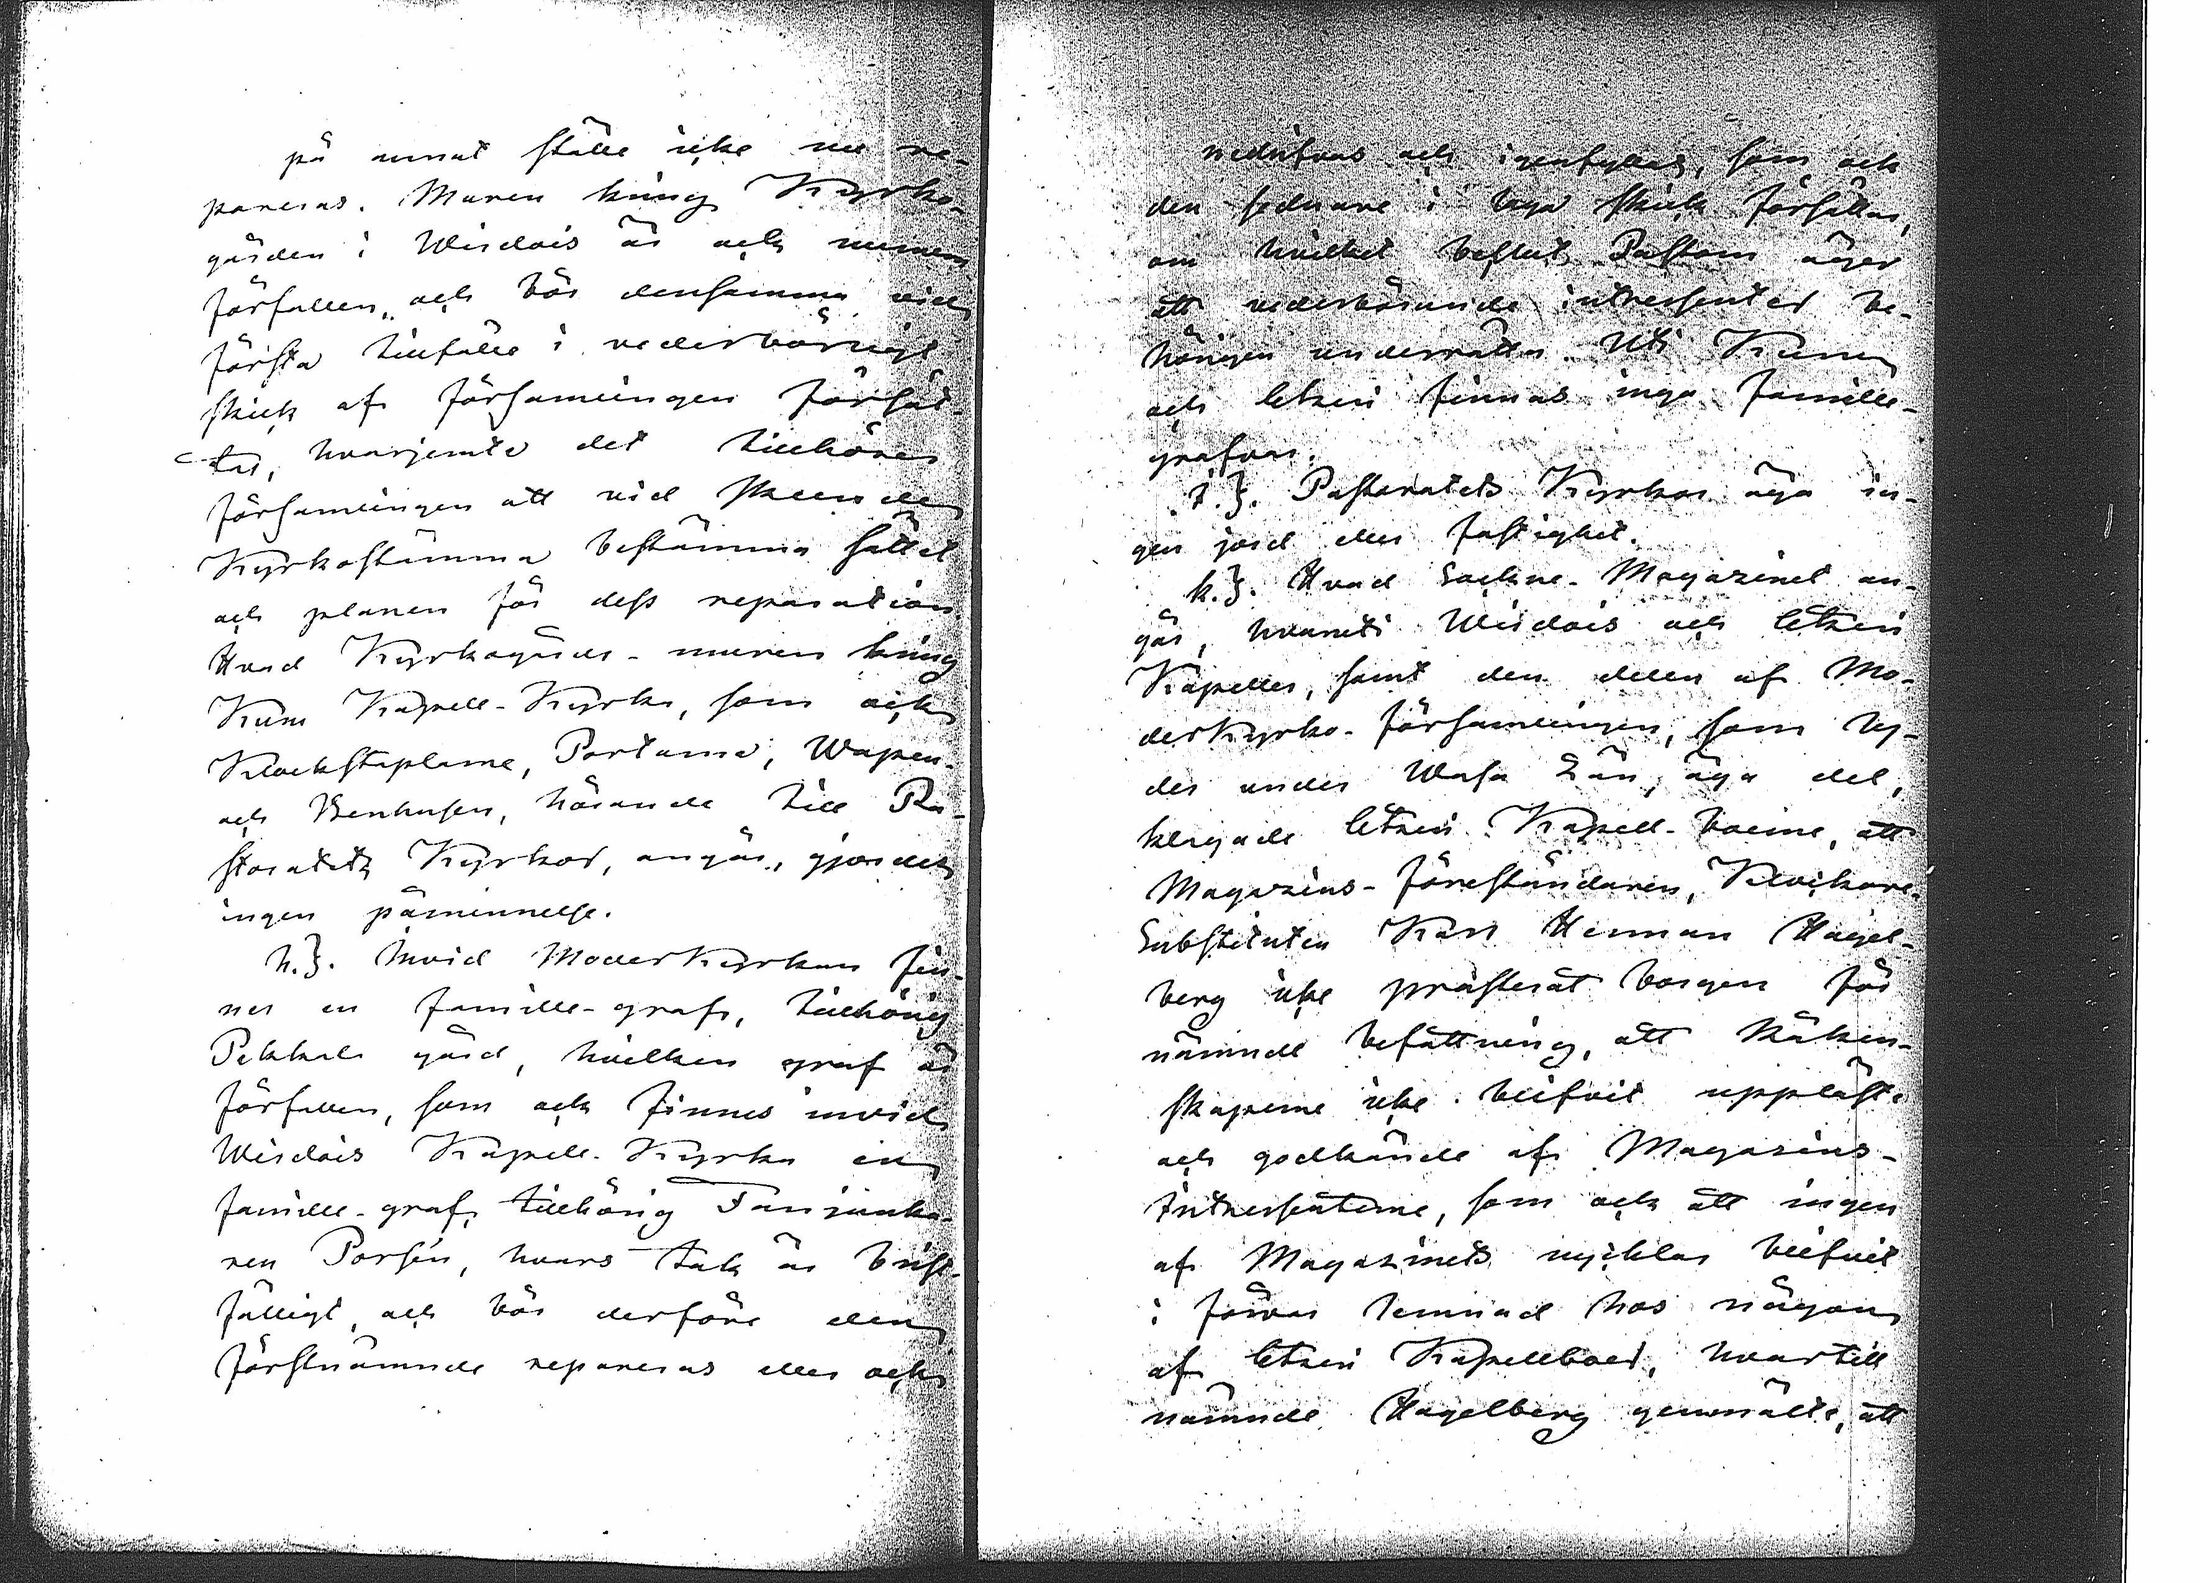 på annat ställe icke nu re-
pareras. Muren kring Kyrko-
gården i Wirdois är ock numera
förfallen, och bör densamma vid
första tillfälle i vederbörligt
skick af församlingen försät-
tas, hvarjemte det tillhörer
församlingen att vid skeende
Kyrkostämma bestämma sättet
och planen för dess reparation.
Hvad Kyrkogårds-muren kring
Kuru Kapell-Kyrka, som ock
Klockstaplarne, Portarne, Wapen-
och Benhusen, hörande till Pa-
storatets Kyrkor, angår, gjordes
ingen påminnelse.
h.). Invid Moderkyrkan fin-
nes en famille-graf, tillhörig
Pekkala gård, hvilken graf är
förfallen, som ock finnes invid
Wirdois Kapell-Kyrka en
famille-graf, tillhörig
Porsén, hvars tak är bris-
fälligt, och bör derföre den
förstnämnde repareras eller ock
nedrifvas och igenfyllas, som ock
den sednare i laga skick försättas,
om hvilket beslut Pastorn äger
att vederbörande intressenter be-
hörigen underrätta. Uti Kuru
och Etseri finnas inga famille-
grafvar.
i.). Pastoratets Kyrkor äga in-
gen jord eller fastighet.
k.). Hvad Sockne-Magazinet an-
går, hvaruti Wirdois och Etseri
Kapeller, samt den delen af Mo-
derkyrko-församlingen, som ly-
der under Wasa Län, äga del,
klagade Etseri Kapell-boerne, att
Magazins-föreståndaren, Klockare-
Substituten Karl Herman Hagel-
berg icke præsterat borgen för
nämnde befattning, att Räken-
skaperne icke blifvit uppläste
och godkände af Magasins-
Intressenterne, som ock att ingen
af Magazinets nycklar blifvit
i förvar lemnad hos någon
af Etseri Kapellboer, hvartill
nämnde Hagelberg genmälte, att